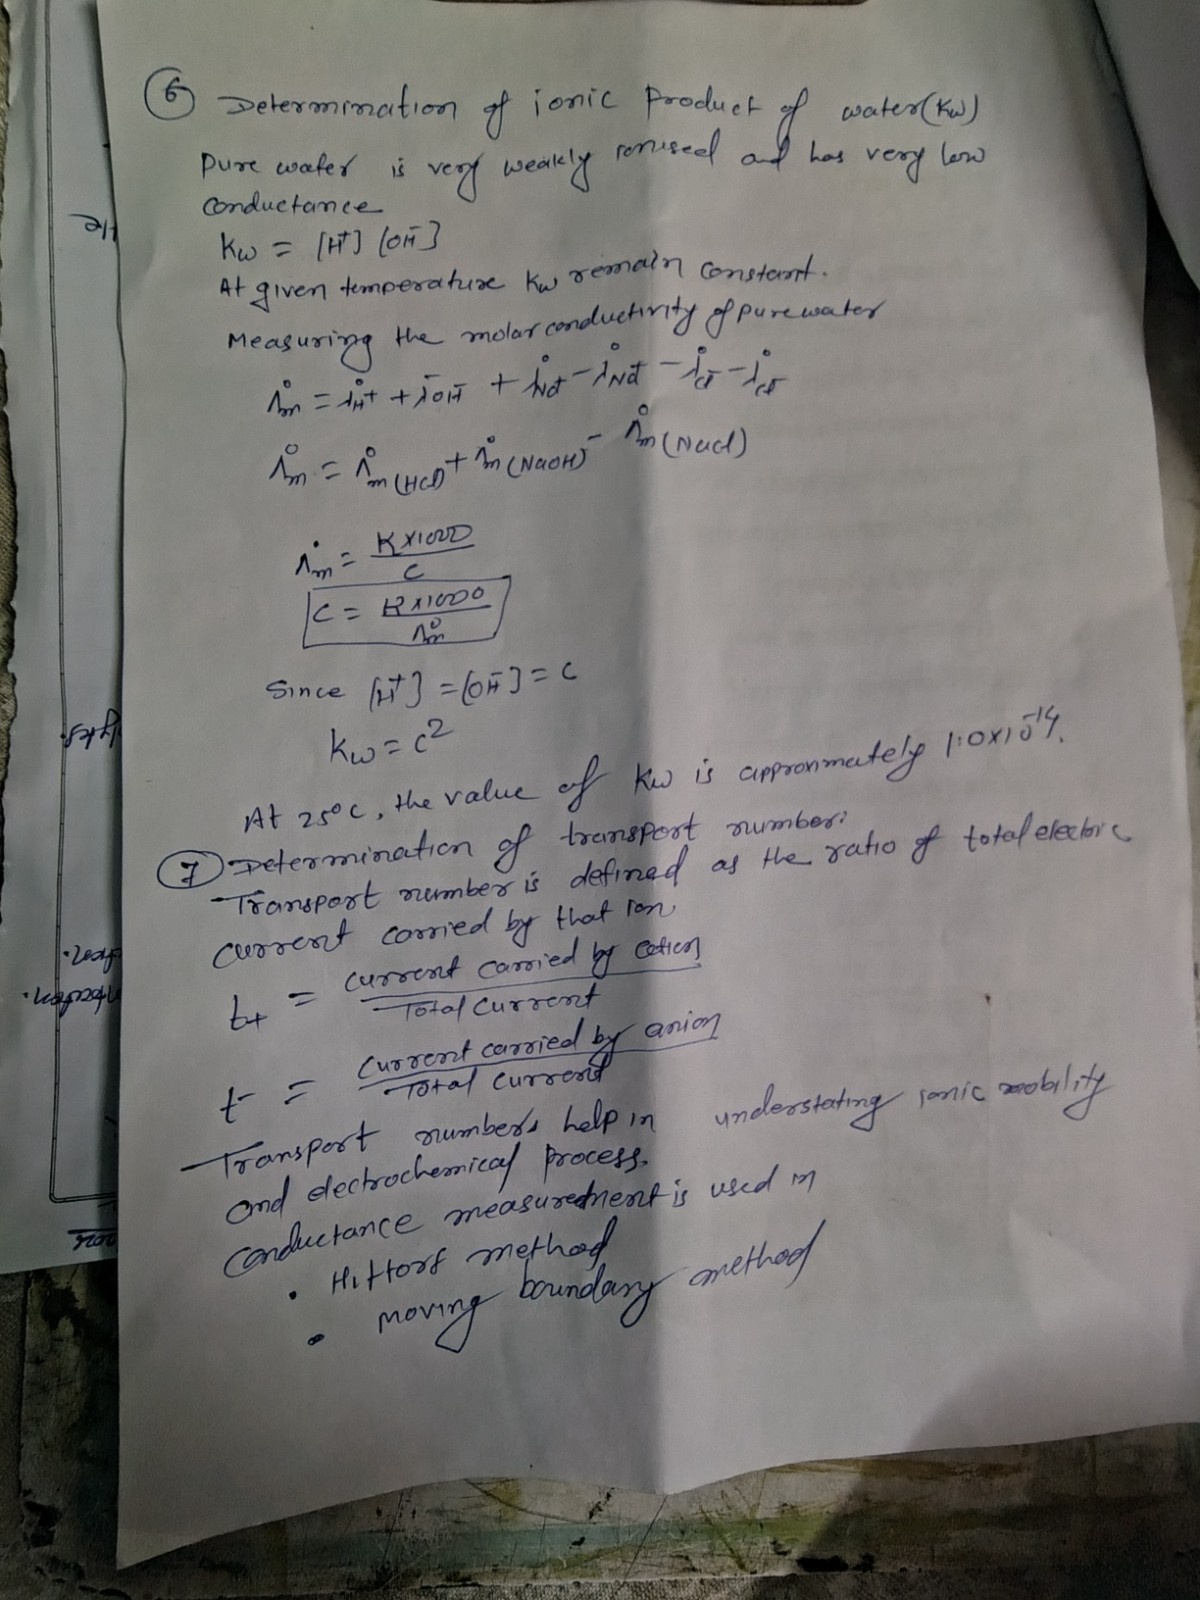 6 Determination of ionic product of water (Kw)
Pure water is very weakly ionised and has very low
conductance
Kw = [H⁺] [OH⁻]
At given temperature Kw remain constant.
Measuring the molar conductivity of pure water
Λ°m = λ°H⁺ + λ°OH⁻ + λ°Na⁺ - λ°Na⁺ - λ°Cl⁻ - λ°Cl⁻
Λ°m = Λ°m (HCl) + Λ°m (NaOH) - Λ°m (NaCl)
Λ°m = K×1000 / C
C = K×1000 / Λ°m
Since [H⁺] = [OH⁻] = C
Kw = C²
At 25°C, the value of Kw is approxmately 1.0×10⁻¹⁴.
7 Determination of transport number:
Transport number is defined as the ratio of total electric
current carried by that ion
t+ = current carried by cation / Total current
t- = current carried by anion / Total current
Transport numbers help in understating ionic mobility
and electrochemical process.
Conductance measurement is used in
• Hittorf method
• moving boundary method